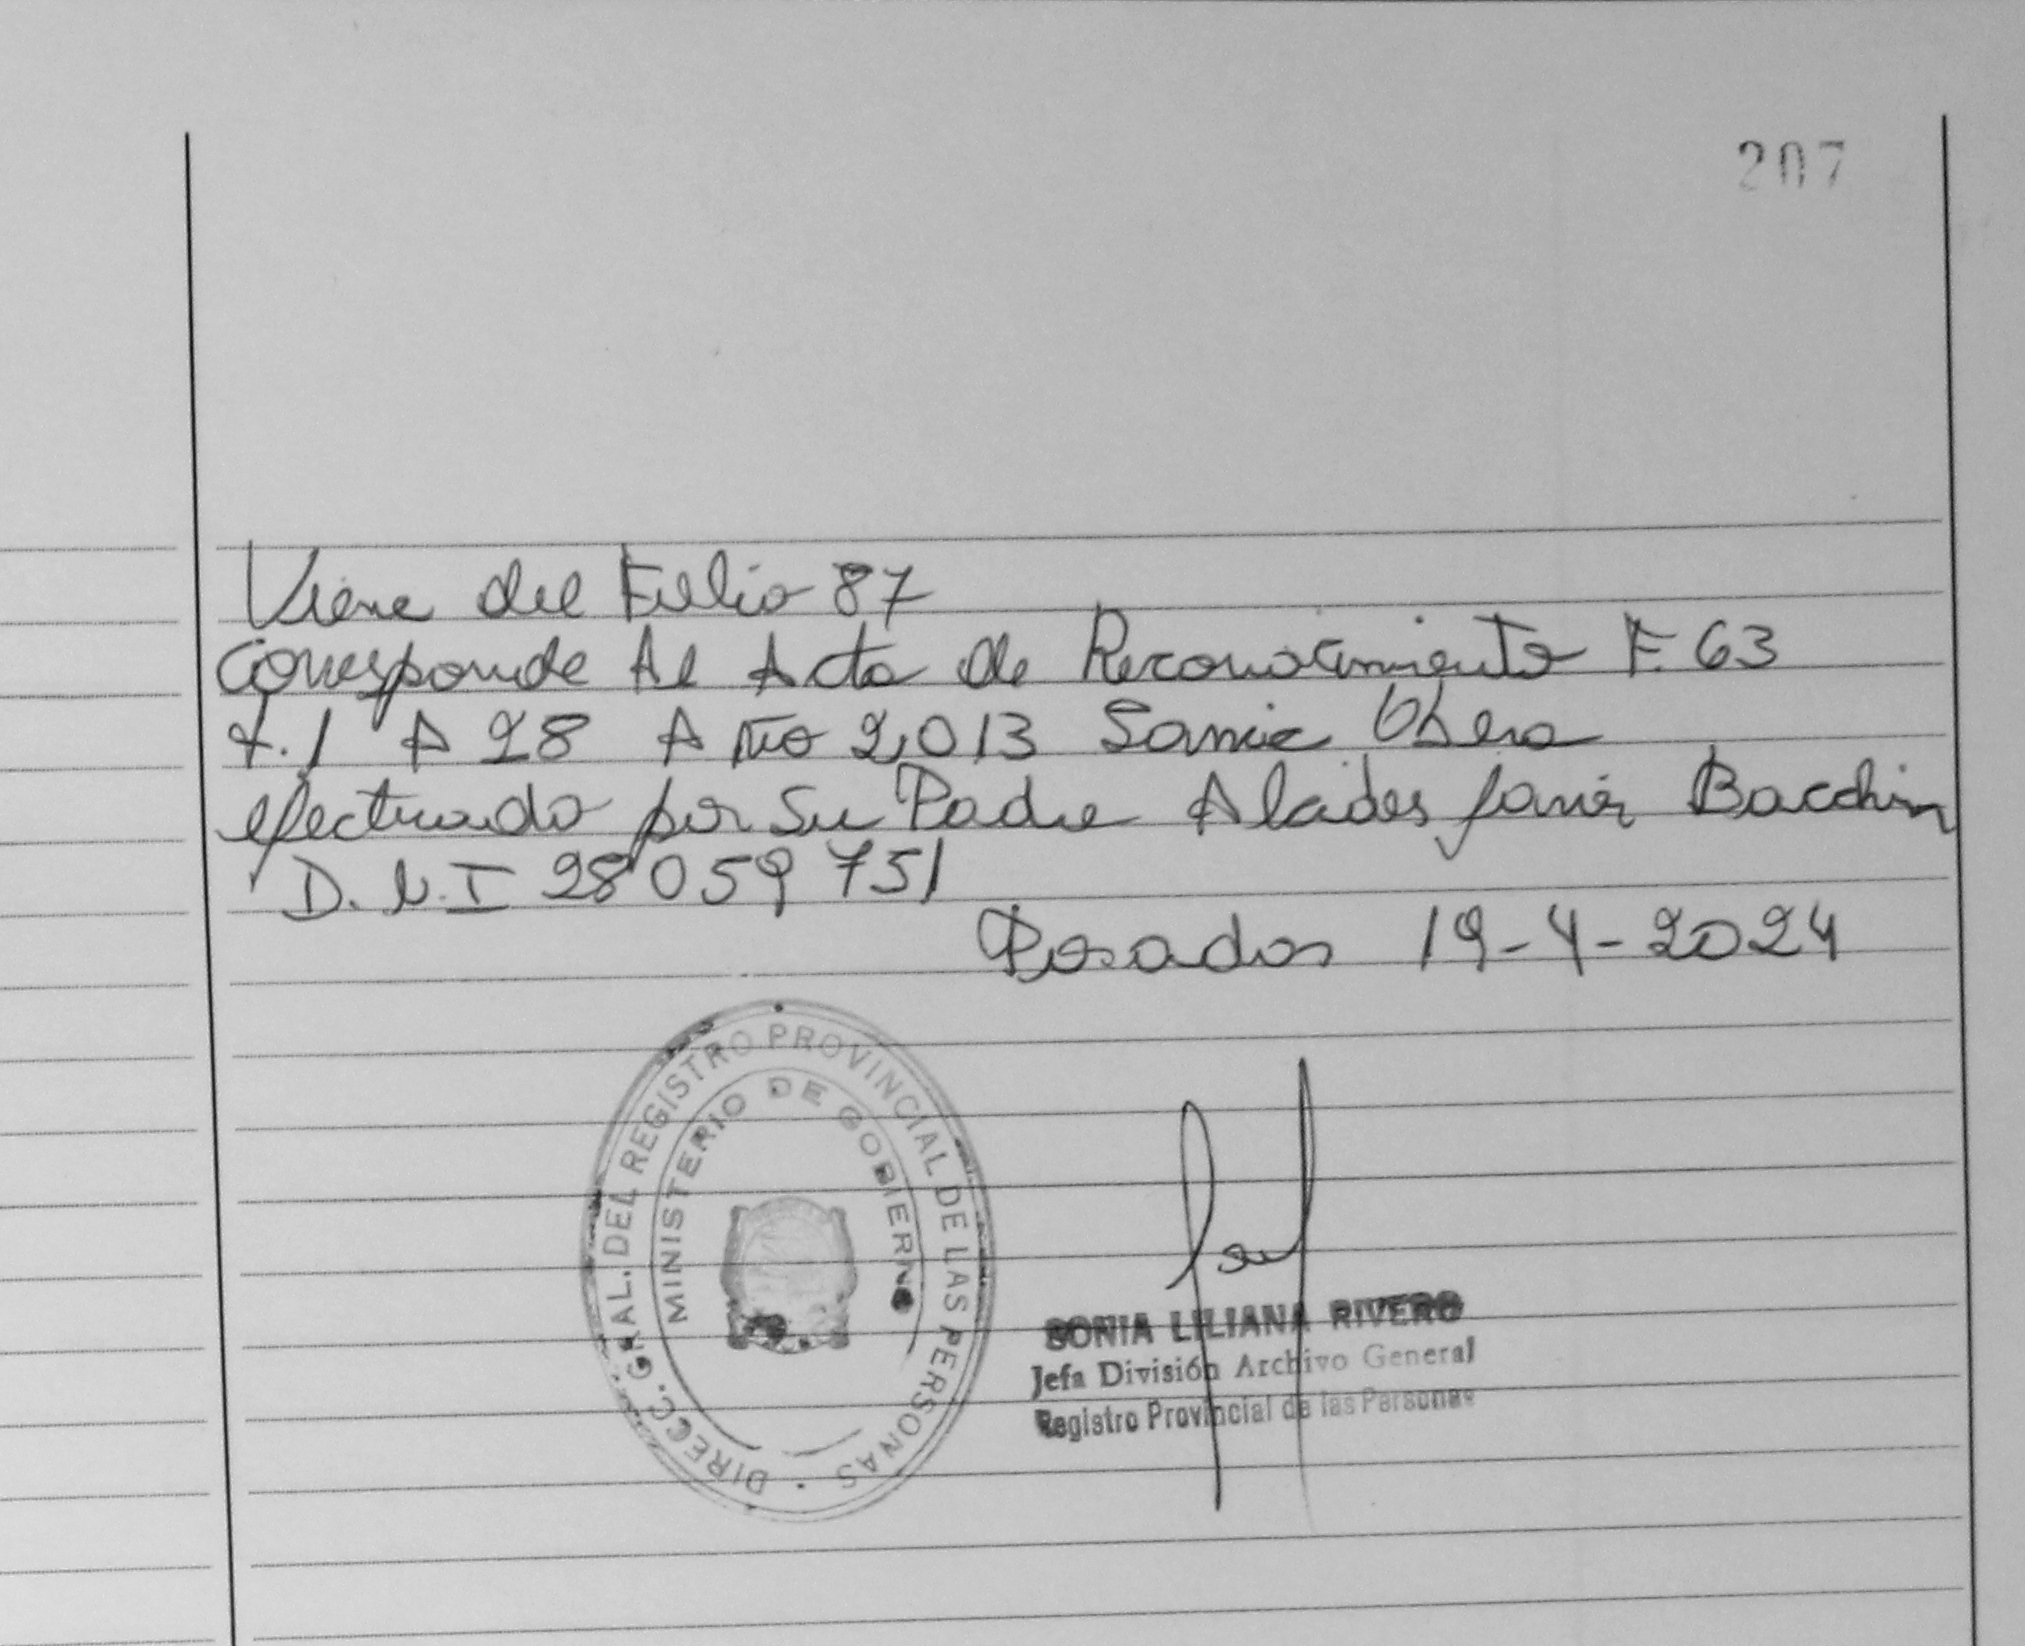 207
Viene del Folio 87
Corresponde Al Acta de Reconocimiento F. 63
t. 1 A 28 Año 2,013 Samic Obera
efectuado por Su Padre Alcides Javier Bacchin
D.N.I 28 059 751
Posadas 19-4-2024
DIRECC. GRAL. DEL REGISTRO PROVINCIAL DE LAS PERSONAS
MINISTERIO DE GOBIERNO
SONIA LILIANA RIVERO
Jefa División Archivo General
Registro Provincial de las Personas